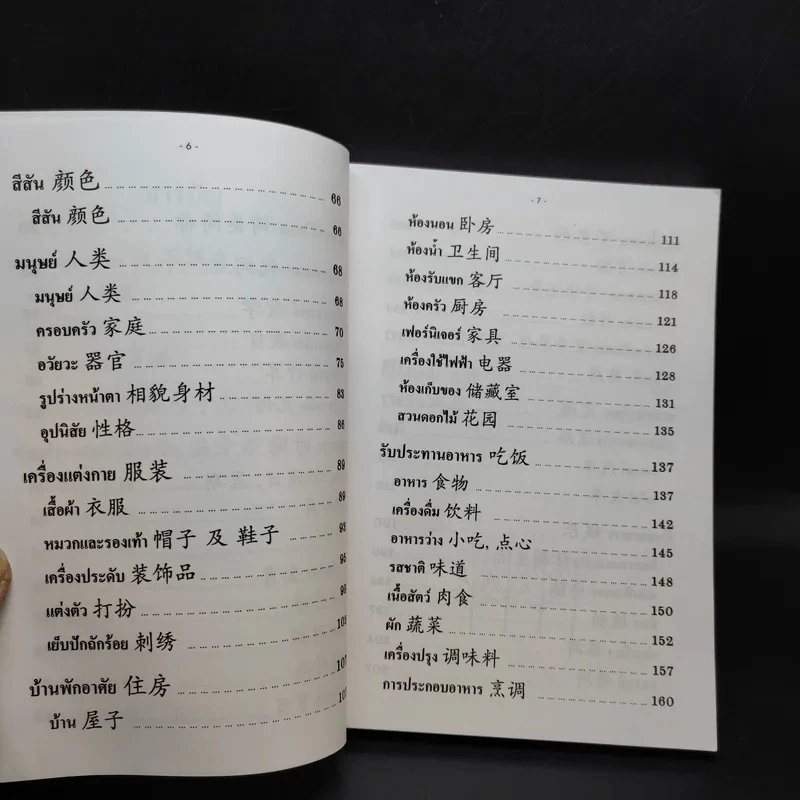 - 6 -
สีสัน 颜色 66
สีสัน 颜色 66
มนุษย์ 人类 68
มนุษย์ 人类 68
ครอบครัว 家庭 70
อวัยวะ 器官 75
รูปร่างหน้าตา 相貌身材 83
อุปนิสัย 性格 86
เครื่องแต่งกาย 服装 89
เสื้อผ้า 衣服 89
หมวกและรองเท้า 帽子 及 鞋子 93
เครื่องประดับ 装饰品 95
แต่งตัว 打扮 98
เย็บปักถักร้อย 刺绣 103
บ้านพักอาศัย 住房 107
บ้าน 屋子 107
- 7 -
ห้องนอน 卧房 111
ห้องน้ำ 卫生间 114
ห้องรับแขก 客厅 118
ห้องครัว 厨房 121
เฟอร์นิเจอร์ 家具 126
เครื่องใช้ไฟฟ้า 电器 128
ห้องเก็บของ 储藏室 131
สวนดอกไม้ 花园 135
รับประทานอาหาร 吃饭 137
อาหาร 食物 137
เครื่องดื่ม 饮料 142
อาหารว่าง 小吃, 点心 145
รสชาติ 味道 148
เนื้อสัตว์ 肉食 150
ผัก 蔬菜 152
เครื่องปรุง 调味料 157
การประกอบอาหาร 烹调 160